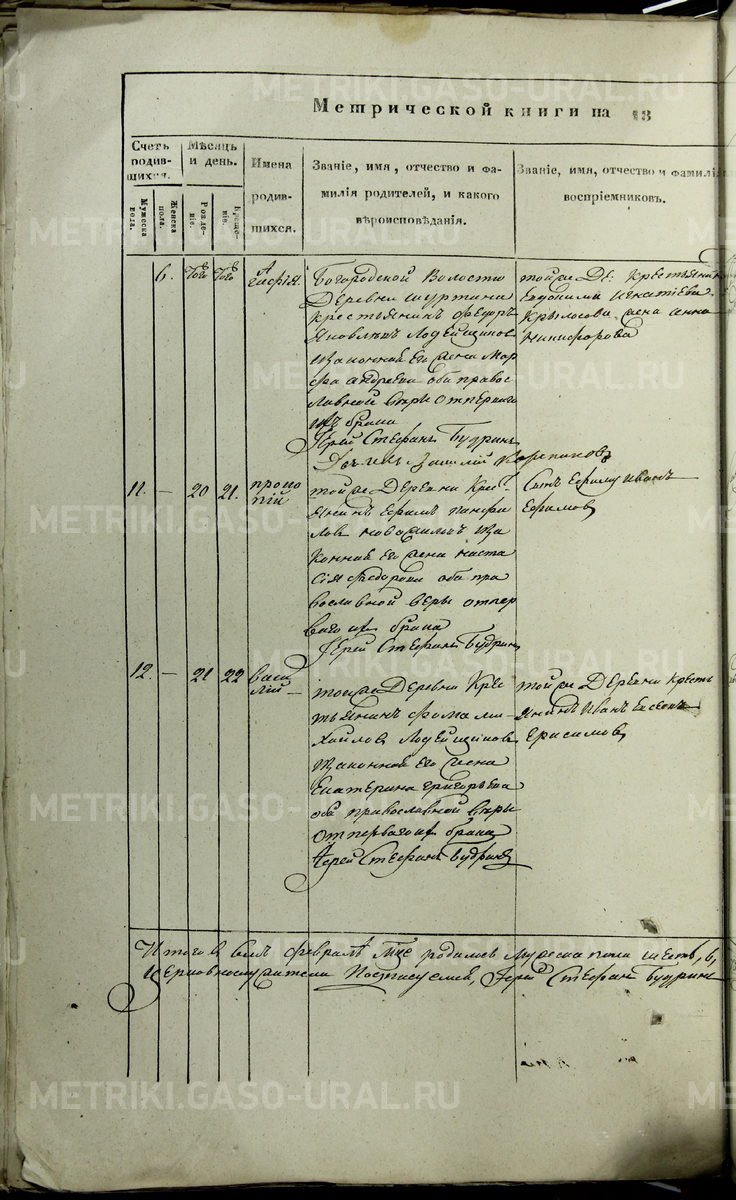 METRIKI.GASO-URAL.RU
Метрической книги на 18
Счетъ родившихся.
Мужеска пола.
Женска пола.
Мѣсяцъ и день.
Рожденіе.
Крещеніе.
Имена родившихся.
Званіе, имя, отчество и фамилія родителей, и какого вѣроисповѣданія.
Званіе, имя, отчество и фамилія воспріемниковъ.
6. Того Того
Богородской Волости
Деревни Шуртана
крестьянинъ Федоръ
Яковлевъ
законная его жена Мар
фа Андреева оба право
славной вѣры отперваго
брака
Іерей Стефанъ Будринъ
тойже Де: крестьянин
Евдокима Игнатіева
Крылосова жена Анна
Никифорова
11. — 20 21. Проко
пій
тойже Деревни Кре
янинъ Ефимъ Панфи
ловъ за
конная его жена Наста
сія Федорова оба пра
вославной веры отпер
ваго брака
Іерей Стефанъ Будринъ
Сынъ Ефима Иванъ
Ефимовъ
12. — 21 22 Васи
лій
тойже Деревни Кре
тьянинъ Фома Ми
хайловъ
Законная его жена
Екатерина Григорьева
оба православной вѣры
отперваго брака
Іерей Стефанъ Будринъ
тойже Деревни кресть
янинъ Иванъ
Герасимовъ
Итого в семъ февралѣ мцѣ родилось мужеска пола шесть, 6,
Іерей Стефан Будринъ